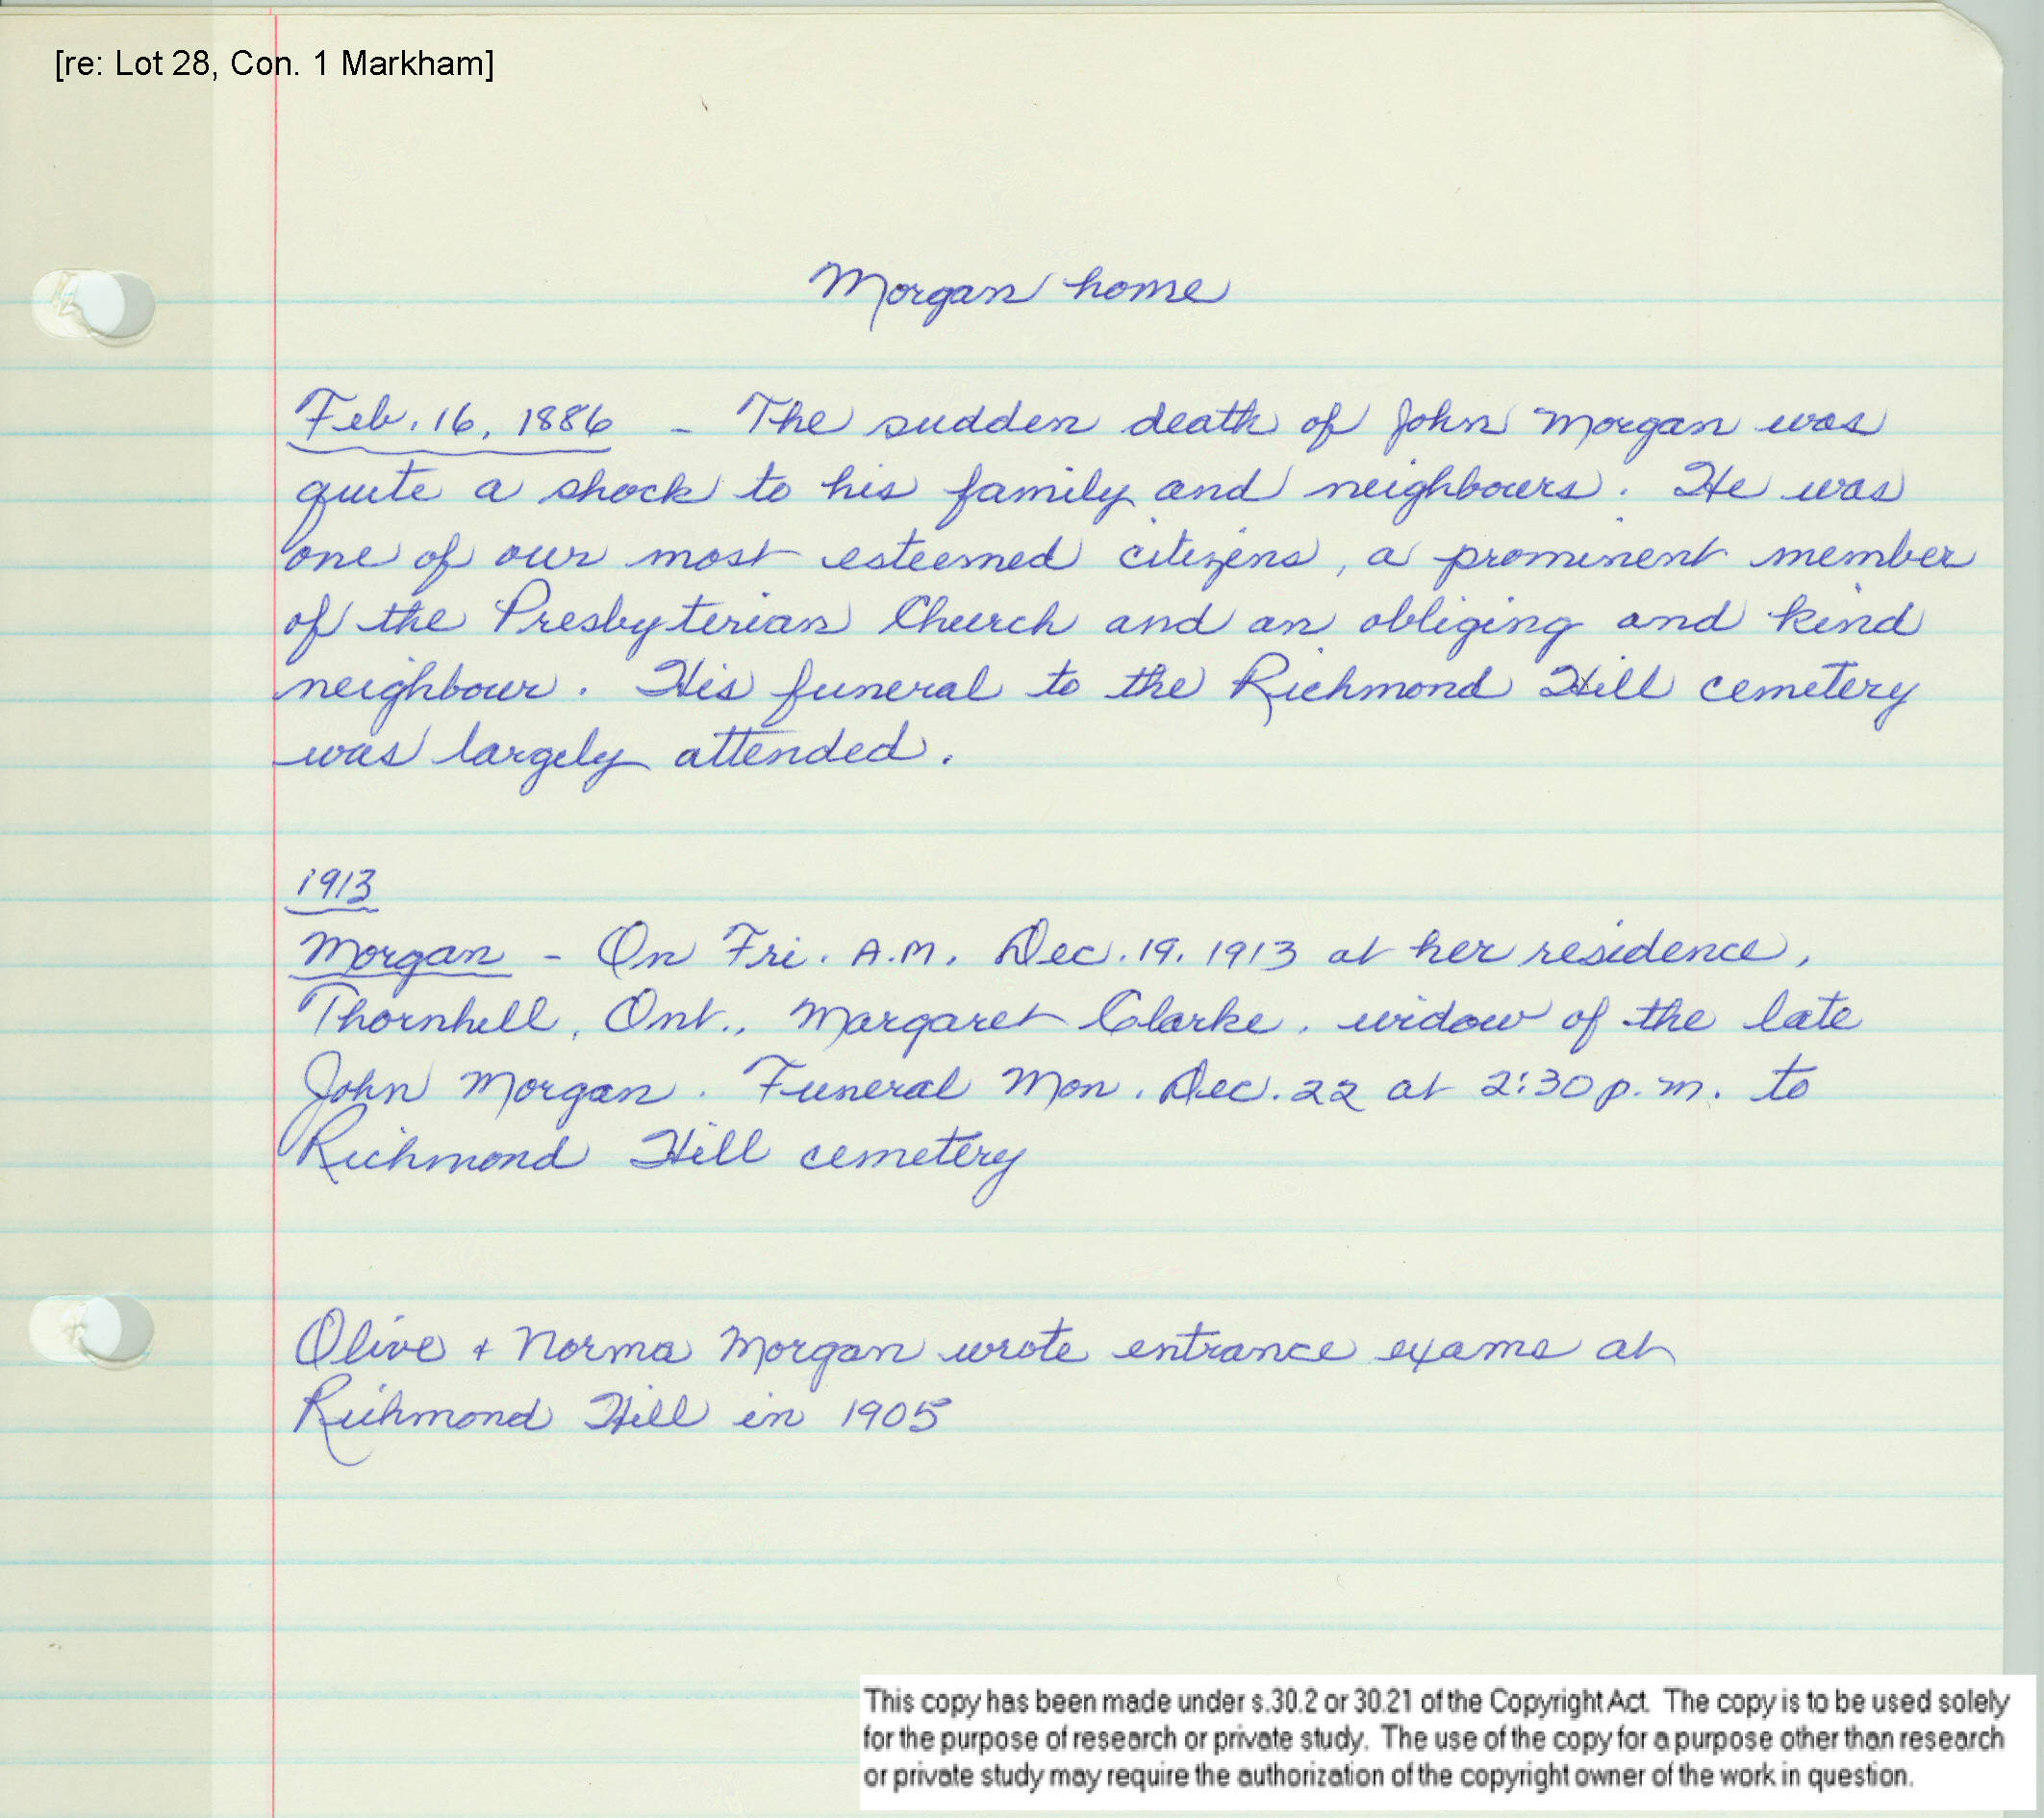 [re: Lot 28, Con. 1 Markham]
Morgan home
Feb. 16, 1886 - The sudden death of John Morgan was
quite a shock to his family and neighbours. He was
one of our most esteemed citizens, a prominent member
of the Presbyterian Church and an obliging and kind
neighbour. His funeral to the Richmond Hill cemetery
was largely attended.
1913
Morgan - On Fri. A.M. Dec. 19, 1913 at her residence,
Thornhill, Ont., Margaret Clarke, widow of the late
John Morgan. Funeral Mon. Dec. 22 at 2:30 p.m. to
Richmond Hill cemetery
Olive + Norma Morgan wrote entrance exams at
Richmond Hill in 1905
This copy has been made under s.30.2 or 30.21 of the Copyright Act. The copy is to be used solely
for the purpose of research or private study. The use of the copy for a purpose other than research
or private study may require the authorization of the copyright owner of the work in question.